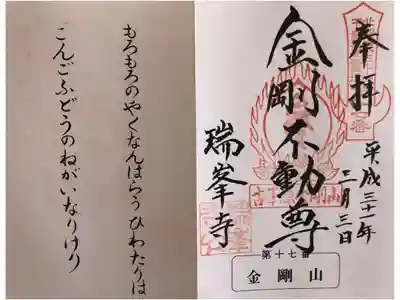 もろもろのやくなんはらうひわたりは
こんごふどうのねがいなりけり
奉拝
平成三十一年
二月三日
金剛不動尊
瑞峯寺
第十七番
金剛山